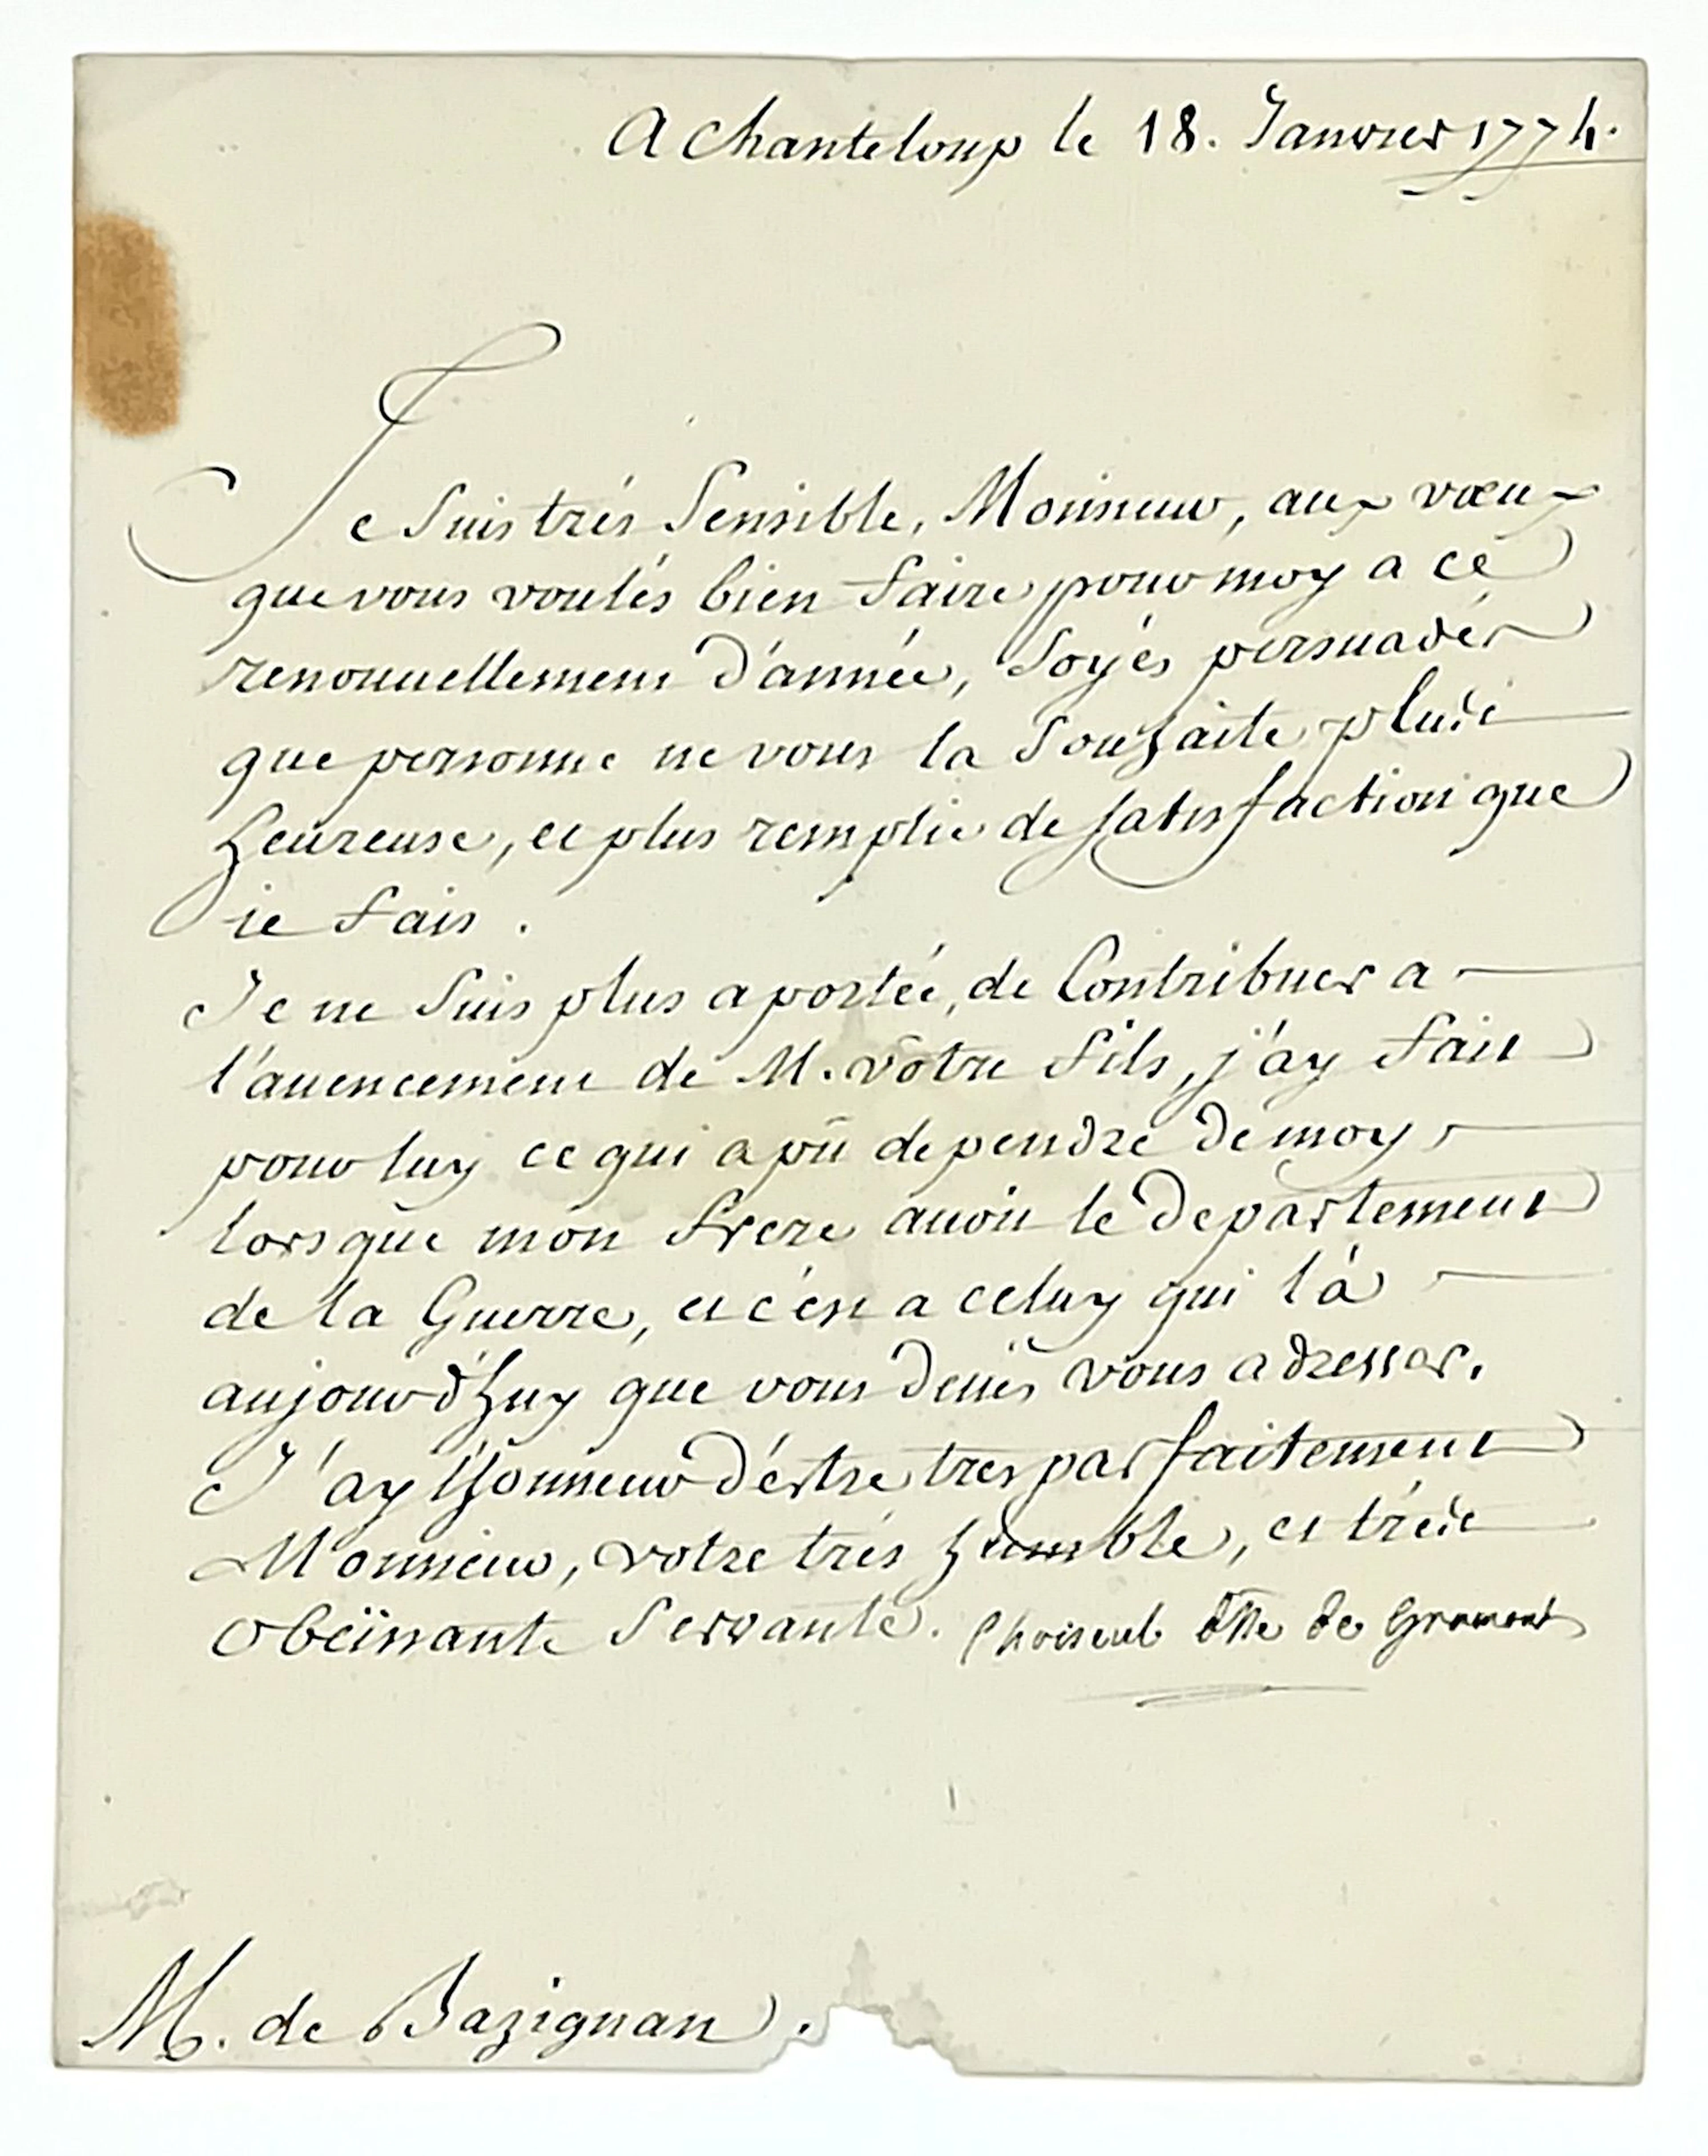 A Chanteloup le 18. Janvier 1774.
Je suis trés sensible, Monsieur, aux vœux
que vous voulés bien faire pour moy a ce
renouuellement d'année, soyés persuadés
que personne ne vous la souhaite plus
heureuse, et plus remplie de satisfaction que
je fais.
Je ne suis plus a portée, de Contribuer a
l'auencement de M. vôtre fils, j'ay fait
pour luy ce qui a pû dependre de moy
lorsque mon frere auoit le Departement
de la Guerre, et c'est a celuy qui l'à
aujourd'huy que vous deués vous adresser.
J'ay l'honneur d'estre tres parfaitement
Monsieur, votre trés humble, et trés
obeïssante servante. Choiseul dsse de Gramont
M. de Bazignan.